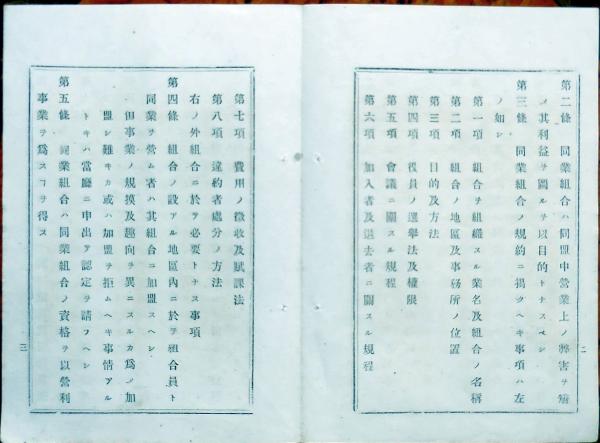 第二條 同業組合ハ同盟中營業上ノ弊害ヲ矯
メ其利益ヲ圖ルヲ以目的トナスベシ
第三條 同業組合ノ規約ニ揭クヘキ事項ハ左
ノ如シ
第一項 組合ヲ組織スル業名及組合ノ名稱
第二項 組合ノ地區及事務所ノ位置
第三項 目的及方法
第四項 役員ノ選擧法及權限
第五項 會議ニ關スル規程
第六項 加入者及退去者ニ關スル規程
二
第七項 費用ノ徵收及賦課法
第八項 違約者處分ノ方法
右ノ外組合ニ於テ必要トナス事項
第四條 組合ノ設アル地區內ニ於テ組合員ト
同業ヲ營ム者ハ其組合ニ加盟スヘシ
但事業ノ規摸及趣向ヲ異ニスルカ爲メ加
盟シ難キカ或ハ加盟ヲ拒ムヘキ事情アル
トキハ當廳ニ申出テ認定ヲ請フヘシ
第五條 同業組合ハ同業組合ノ資格ヲ以營利
事業ヲ爲スコヲ得ス
三